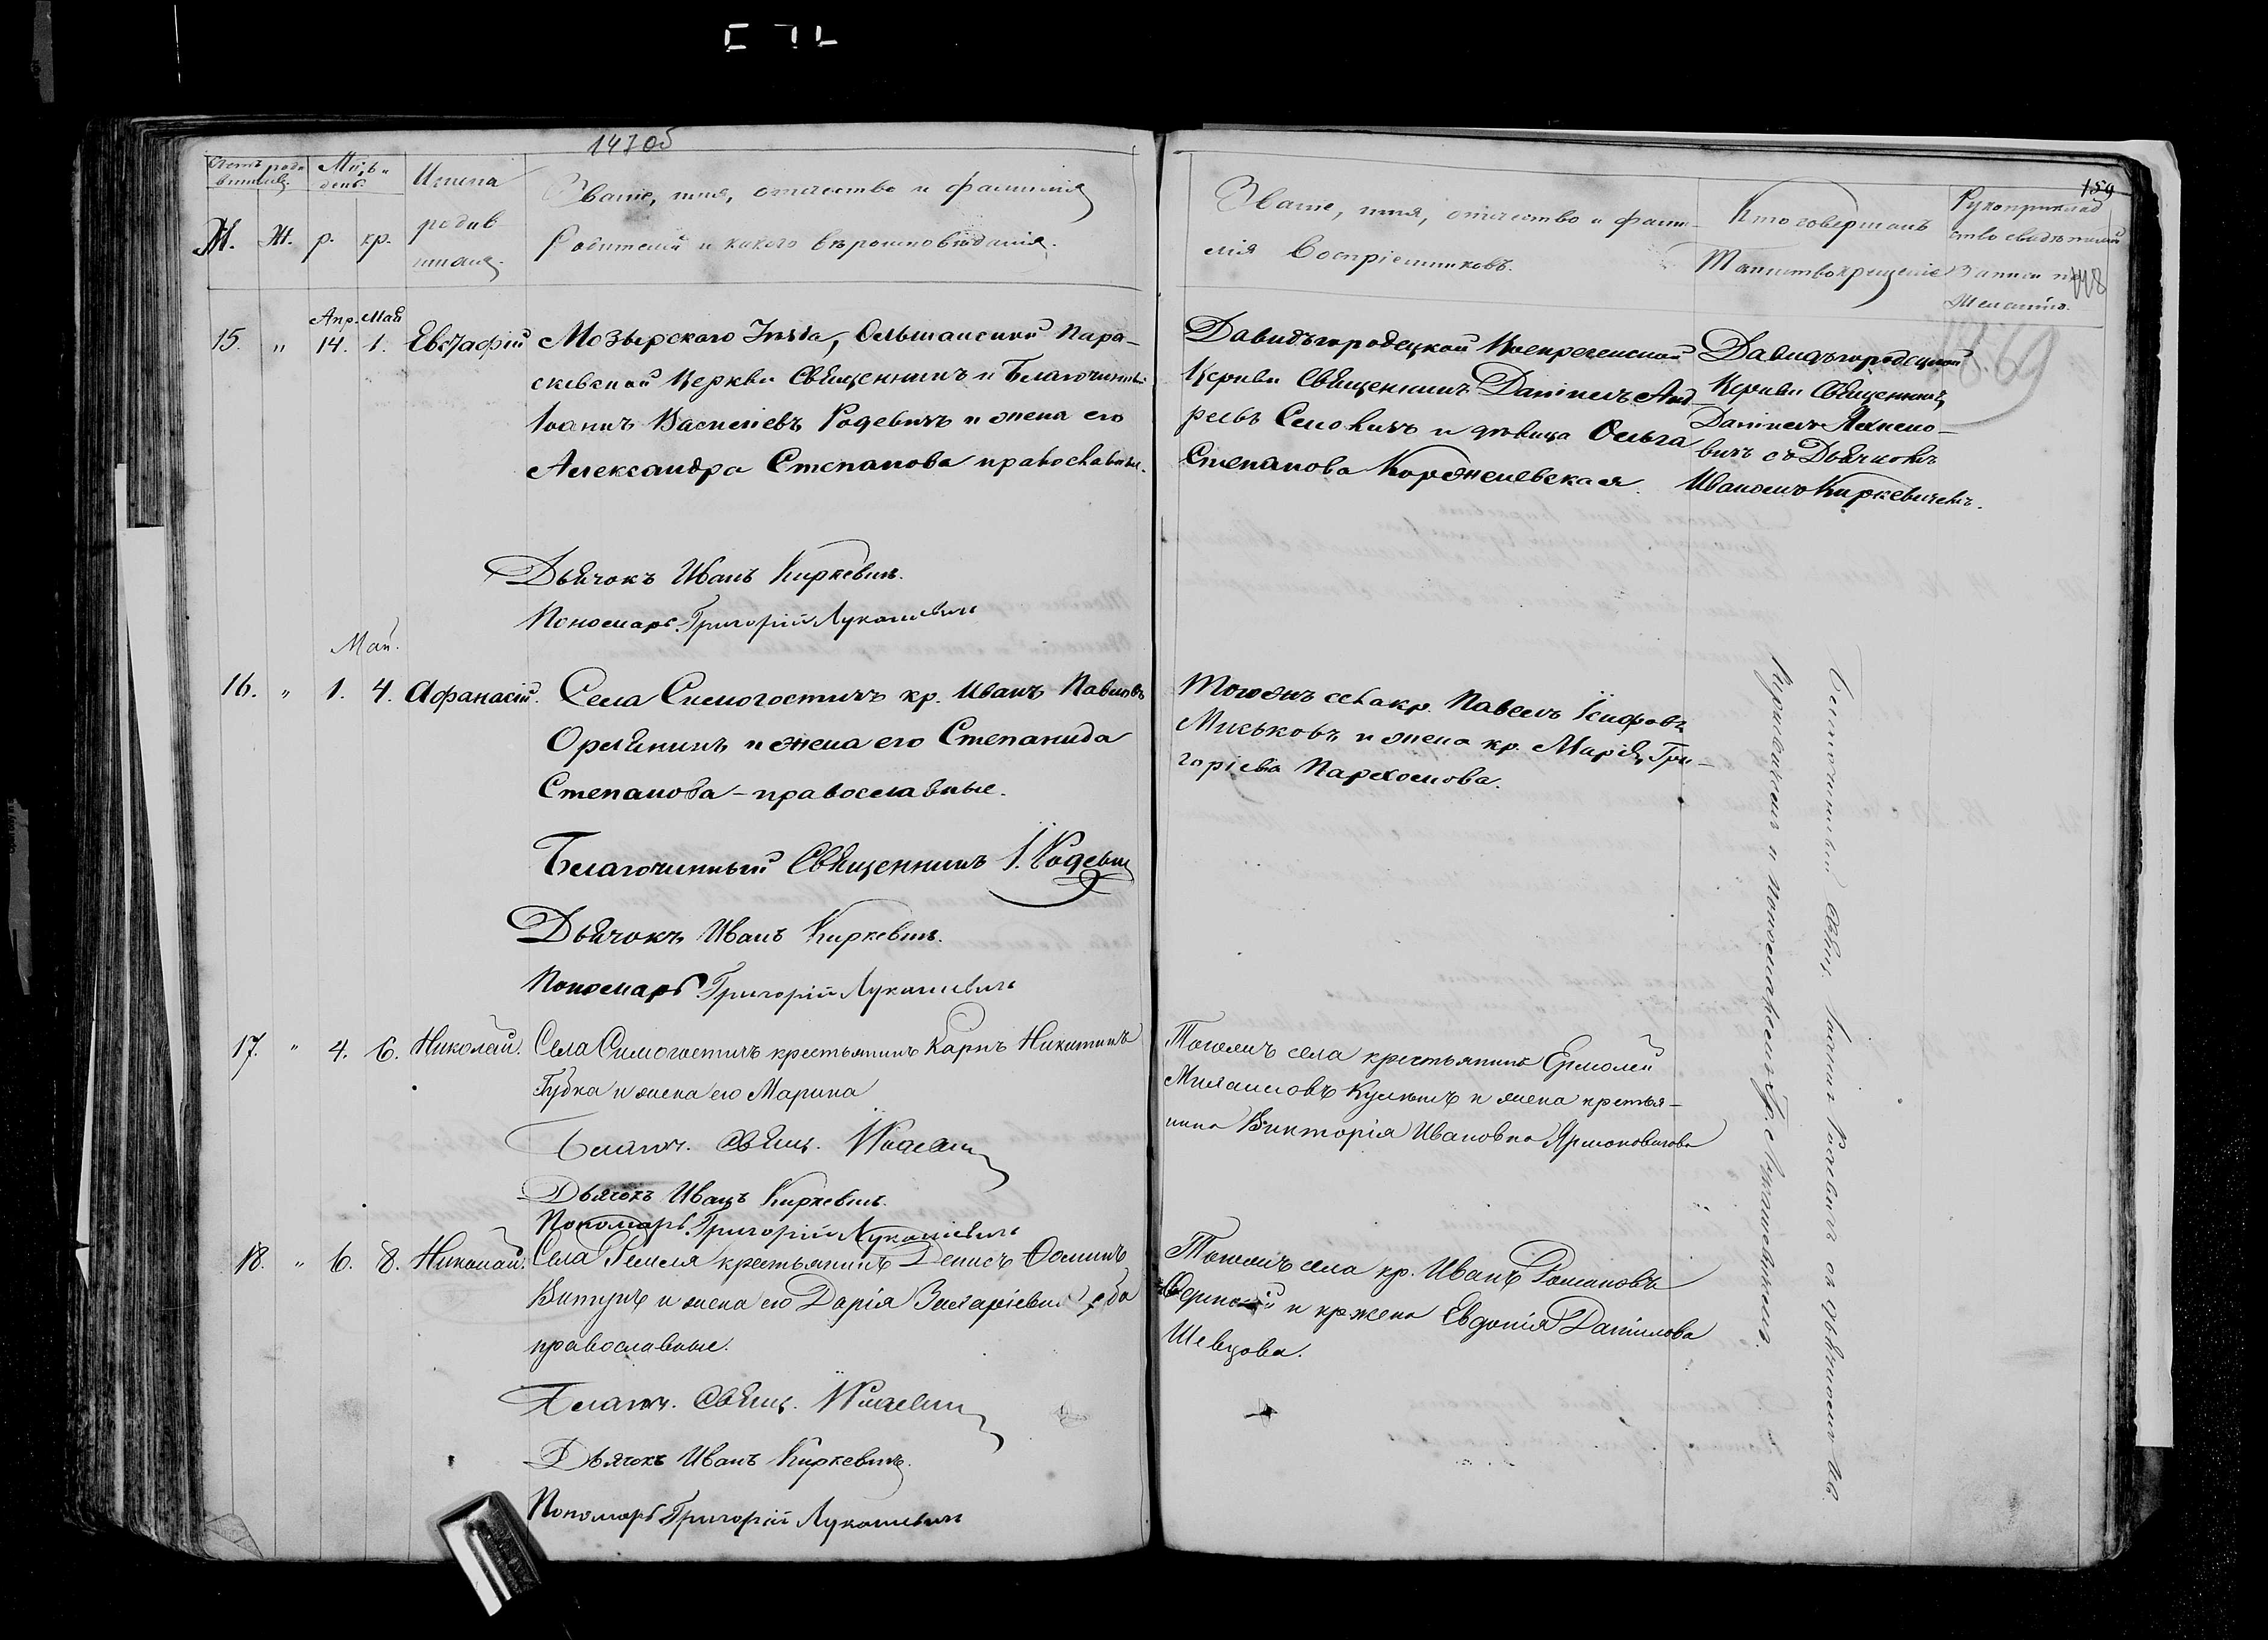 147об
Счетъ роди
вшихся.
Мѣс. и
день.
Имена
родив
шихся.
Званіе, имя, отчество и фамилія
Родителей и какого вѣроисповѣданія.
М.
Ж.
р.
кр.
Апр. Май
15. " 14. 1. Евстафій
Мозырскаго Уѣзда, Ольшанской Пара-
скевской Церкви Священникъ и Благочинный
Іоаннъ Васильевъ Родевичъ и жена его
Александра Степанова православные.
Дьячокъ Иванъ Киркевичъ.
Пономарь Григорій Лукашевичъ
Май.
16. " 1. 4. Афанасій.
Села Симогостичъ кр. Иванъ Павловъ
и жена его Степанида
Степанова - православные.
Благочинный Священникъ І. Родевичъ
Дьячокъ Иванъ Киркевичъ.
Пономарь Григорій Лукашевичъ
17. " 4. 6. Николай.
Села Симогостичъ крестьянинъ Карпъ Никитинъ
Губка и жена его Марина
Благоч. Свящ. І Родевичъ
Дьячокъ Иванъ Киркевичъ.
Пономарь Григорій Лукашевичъ
18. " 6. 8. Николай.
Села крестьянинъ Денисъ Ѳоминъ
и жена его Дарія оба
православные.
Благоч. Свящ. І Родевичъ
Дьячокъ Иванъ Киркевичъ.
Пономарь Григорій Лукашевичъ
159
148
1869
Званіе, имя, отчество и фами-
лія Воспріемниковъ.
Кто совершалъ
Таинство крещенія
Рукоприклад
ство свидѣтелей
записи по
желанію.
Давидъгородецкой Воскресенской
Церкви Священникъ Даніилъ Анд
реевъ и дѣвица Ольга
Степанова Корженевская.
Давидъгородецкой
Церкви Священникъ
Даніилъ
вичъ съ Дьячкомъ
Иваномъ Киркевичемъ.
Тогожъ села кр. Павелъ
Миськовъ и жена кр. Марія Гри-
горіева Пархомова.
Тогожъ села крестьянинъ Ермолай
и жена крестья-
нина Викторія Ивановна
Тогожъ села кр. Иванъ Романовъ
и кр жена Евдокія Даніилова
Шевцова.
Благочинный Свящ. Іоаннъ Родевичъ съ дьячкомъ Ив.
Киркевичемъ и Пономаремъ Гр. Лукашевичемъ.